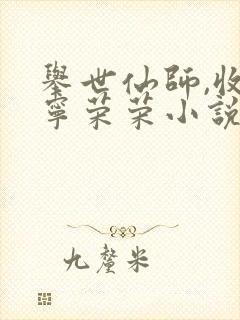 舉世仙師,收
寧荣荣小説
九釐米